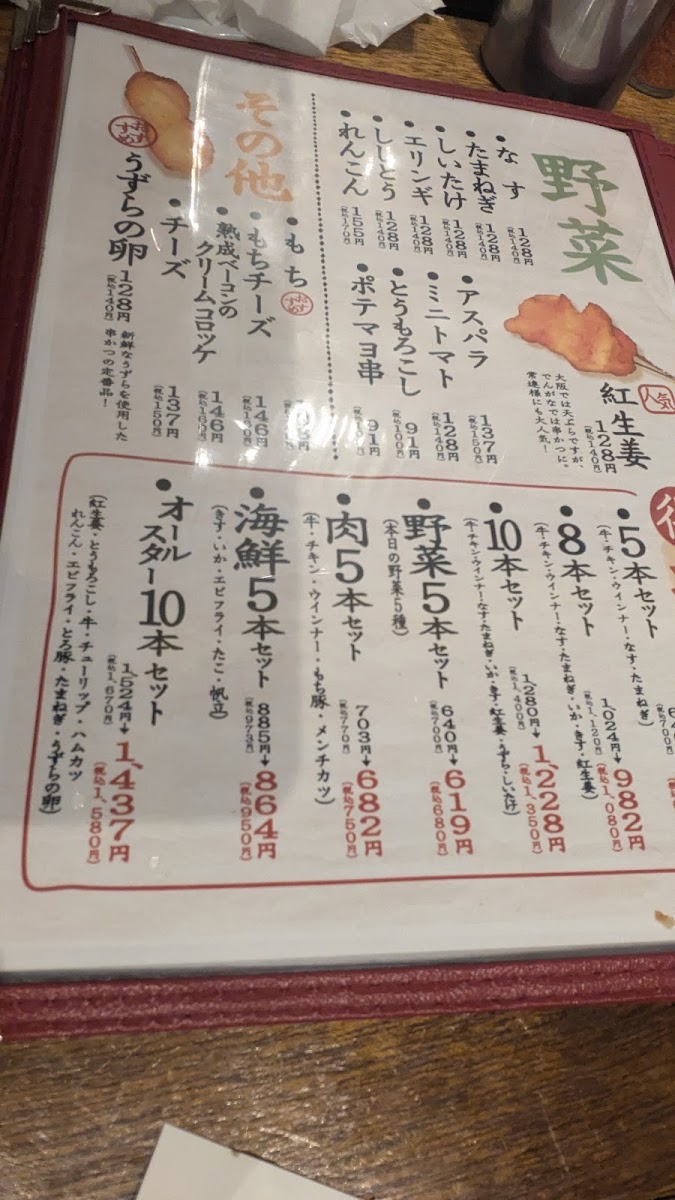 野菜
人気
紅生姜
128円
(税込140円)
大阪では天ぷらですが、
でんがなでは串かつに。
常連様にも大人気!
・なす
128円
(税込140円)
・たまねぎ
128円
(税込140円)
・しいたけ
128円
(税込140円)
・エリンギ
128円
(税込140円)
・ししとう
128円
(税込140円)
・れんこん
155円
(税込170円)
・アスパラ
137円
(税込150円)
・ミニトマト
128円
(税込140円)
・とうもろこし
91円
(税込100円)
・ポテマヨ串
91円
その他
・もち
おすすめ
・もちチーズ
146円
・熟成ベーコンの
クリームコロッケ
146円
(税込160円)
・チーズ
137円
(税込150円)
おすすめ
うずらの卵
128円
(税込140円)
新鮮なうずらを使用した
串かつの定番品!
・5本セット
(牛・チキン・ウインナー・なす・たまねぎ)
・8本セット
(牛・チキン・ウインナー・なす・たまねぎ・いか・きす・紅生姜)
1,024円→982円
(税込1,120円) (税込1,080円)
・10本セット
(牛・チキン・ウインナー・なす・たまねぎ・いか・きす・紅生姜・うずら・しいたけ)
1,280円→1,228円
(税込1,400円) (税込1,350円)
・野菜5本セット
(本日の野菜5種)
640円→619円
(税込700円) (税込680円)
・肉5本セット
(牛・チキン・ウインナー・もち豚・メンチカツ)
703円→682円
(税込770円) (税込750円)
・海鮮5本セット
(きす・いか・エビフライ・たこ・帆立)
885円→864円
(税込973円) (税込950円)
・オール
スター10本セット
1,524円→1,437円
(税込1,670円) (税込1,580円)
(紅生姜・とうもろこし・牛・チューリップ・ハムカツ
れんこん・エビフライ・とろ豚・たまねぎ・うずらの卵)